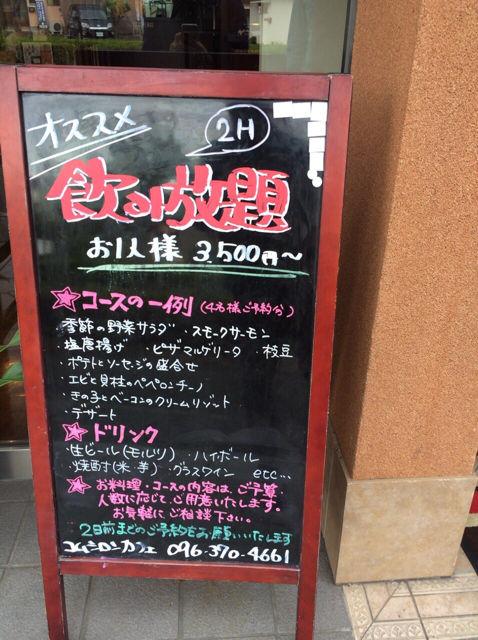 オススメ
2H
飲み放題
お1人様 3,500円〜
☆コースの一例 (4名様ご予約分)
・季節の野菜サラダ ・スモークサーモン
・塩唐揚げ ・ピザマルゲリータ ・枝豆
・ポテトとソーセージの盛合せ
・エビと貝柱のペペロンチーノ
・きの子とベーコンのクリームリゾット
・デザート
☆ドリンク
・生ビール(モルツ) ・ハイボール
・焼酎(米・芋) ・グラスワイン etc...
☆お料理・コースの内容は、ご予算、
人数に応じて、ご用意いたします。
お気軽に、ご相談下さい。
2日前までのご予約をお願いいたします
カフェ 096-370-4661